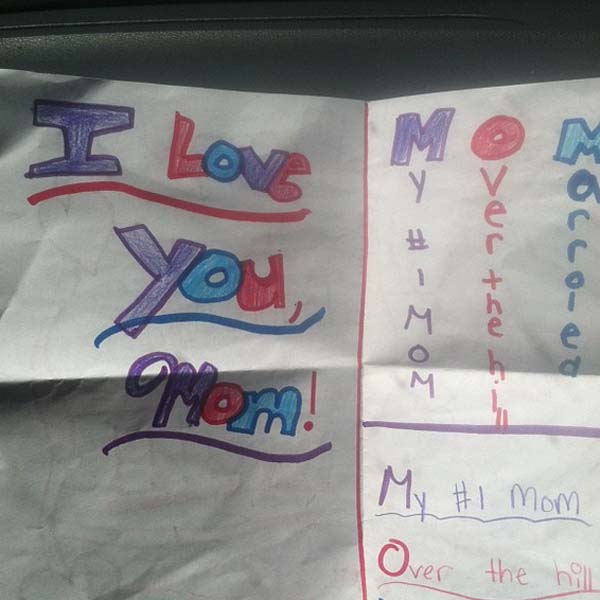 I Love
You,
Mom!
My #1 MOM
Over the hill
Married
My #1 Mom
Over the hill